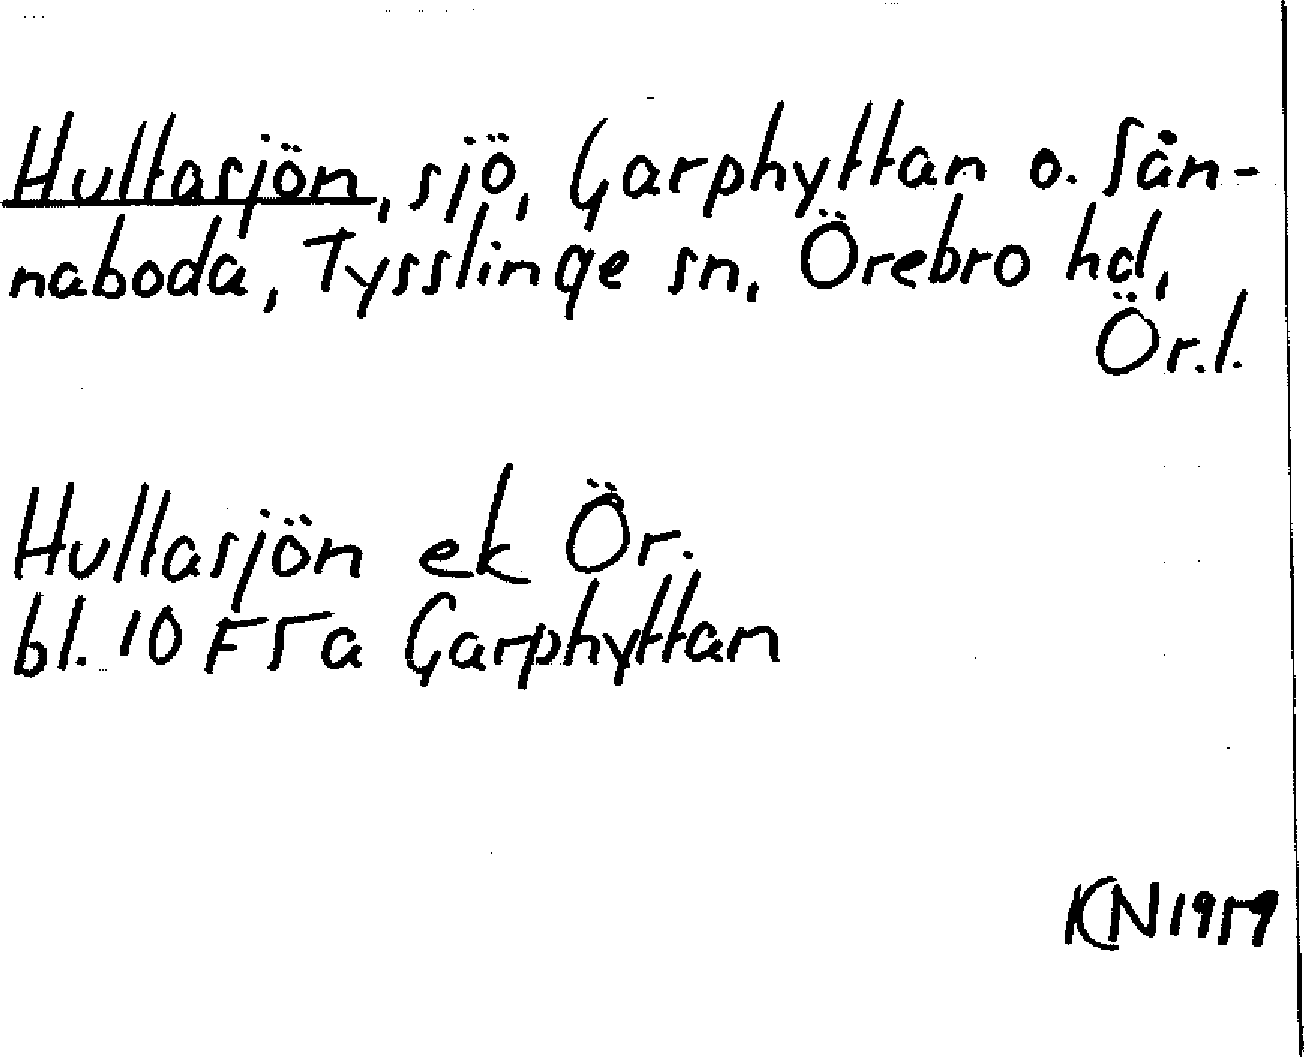 Hultasjön, sjö, Garphyttan o. Sån-
naboda, Tysslinge sn, Örebro hd,
Ör.l.
Hullasjön ek Ör.
bl. 10 F 5 a Garphyttan
KN 1959